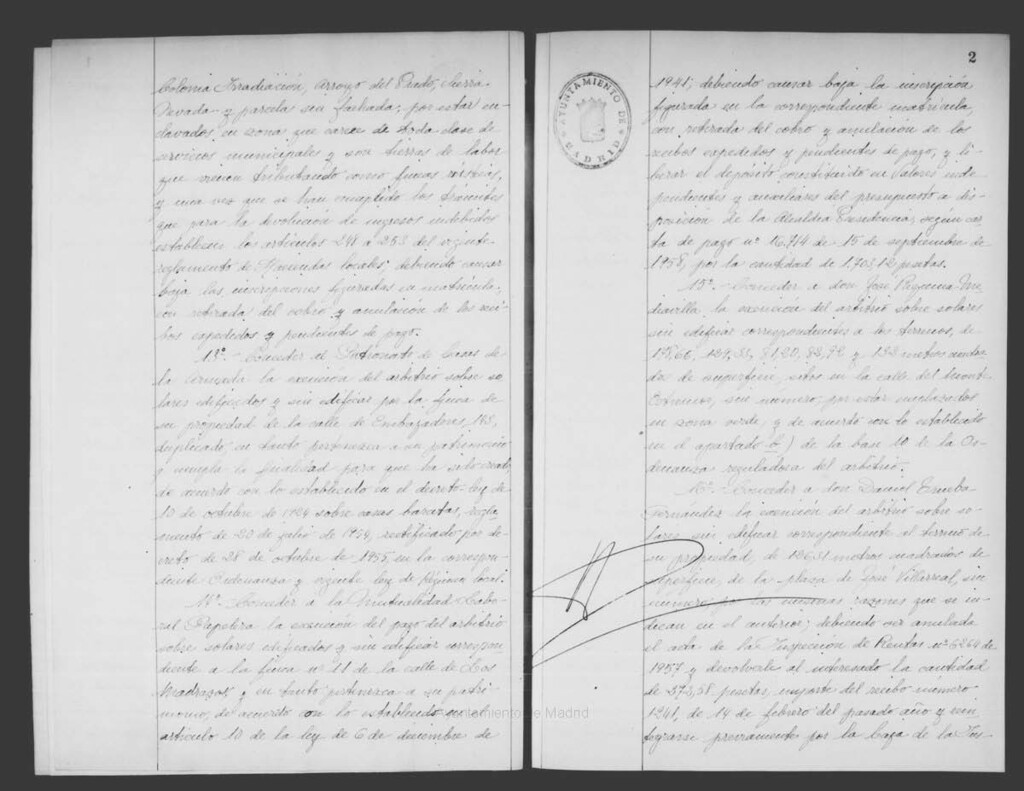 Colonia Irradiación, Arroyo del Prado, Sierra
Nevada y parcela sin fachada; por estar en-
clavados en zona que carece de toda clase de
servicios municipales y son tierras de labor
que vienen tributando como fincas rústicas,
y una vez que se han cumplido los trámites
que para la devolución de ingresos indebidos
establecen los artículos 248 a 253 del vigente
reglamento de Haciendas locales; debiendo causar
baja las inscripciones figuradas en matrícula,
con retirada del cobro y anulación de los reci-
bos expedidos y pendientes de pago.
13º.- Conceder al Patronato de Casas de
la Armada la exención del arbitrio sobre so-
lares edificados y sin edificar por la finca de
su propiedad de la calle de Embajadores, 178,
duplicado, en tanto pertenezca a su patrimonio
y cumpla la finalidad para que ha sido creado
de acuerdo con lo establecido en el decreto-ley de
10 de octubre de 1924 sobre casas baratas, regla-
mento de 20 de julio de 1954, ratificado por de-
creto de 28 de octubre de 1955, en la correspon-
diente Ordenanza y vigente ley de Régimen local.
14º.- Conceder a la Mutualidad Labo-
ral la exención del pago del arbitrio
sobre solares edificados y sin edificar correspon-
diente a la finca nº 11 de la calle de Los
Madrazo, y en tanto pertenezca a su patri-
monio, de acuerdo con lo establecido en el
artículo 10 de la ley de 6 de diciembre de
Ayuntamiento de Madrid
2
AYUNTAMIENTO DE MADRID
1941; debiendo causar baja la inscripción
figurada en la correspondiente matrícula,
con retirada del cobro y anulación de los
recibos expedidos y pendientes de pago, y li-
berar el depósito constituído en Valores inde-
pendientes y auxiliares del presupuesto a dis-
posición de la Alcaldía Presidencia, según car-
ta de pago nº 16.714 de 15 de septiembre de
1958, por la cantidad de 1.703,12 pesetas.
15º.- Conceder a don José
la exención del arbitrio sobre solares
sin edificar correspondientes a los terrenos, de
y 132 metros cuadra-
dos de superficie, sitos en la calle del Monte
sin número, por estar enclavados
en zona verde, y de acuerdo con lo establecido
en el apartado) de la base 10 de la Or-
denanza reguladora del arbitrio.
16º.- Conceder a don Daniel
Fernández la exención del arbitrio sobre so-
lares sin edificar correspondiente al terreno de
su propiedad, de metros cuadrados de
superficie, de la plaza de José Villarreal, sin
número, por las mismas razones que se in-
dican en el anterior; debiendo ser anulada
el acta de la Inspección de Rentas nº de
1957 y devolverle al interesado la cantidad
de pesetas, importe del recibo número
1241, de 14 de febrero del pasado año y rein-
tegrarse previamente por la Caja de la Ins-